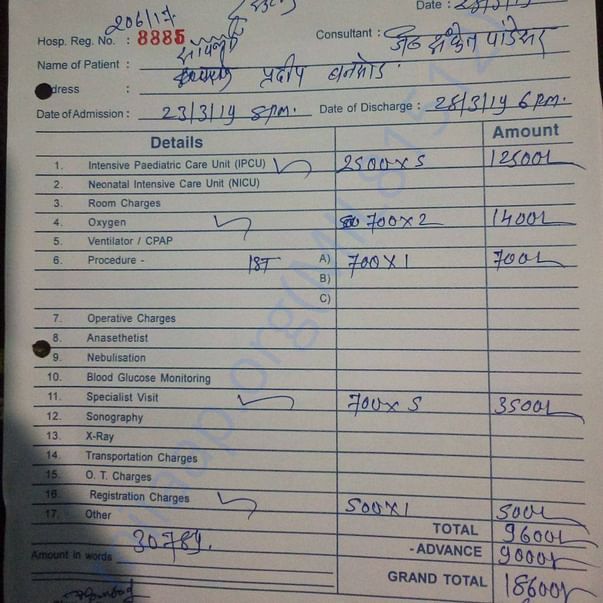 206/17
Date :
Hosp. Reg. No. : 8885 Consultant :
Name of Patient : प्रदीप
dress :
Date of Admission : 23/3/19 8 P.m. Date of Discharge : 28/3/19 6 P.m.
Details Amount
1. Intensive Paediatric Care Unit (IPCU) 2500 x 5 12500/-
2. Neonatal Intensive Care Unit (NICU)
3. Room Charges
4. Oxygen 700 x 2 1400/-
5. Ventilator / CPAP
6. Procedure - A) 700 x 1 700/-
B)
C)
7. Operative Charges
8. Anasethetist
9. Nebulisation
10. Blood Glucose Monitoring
11. Specialist Visit 700 x 5 3500/-
12. Sonography
13. X-Ray
14. Transportation Charges
15. O. T. Charges
16. Registration Charges
17. Other 500 x 1 500/-
TOTAL 9600/-
30789.
Amount in words - ADVANCE 9000/-
GRAND TOTAL 18600/-